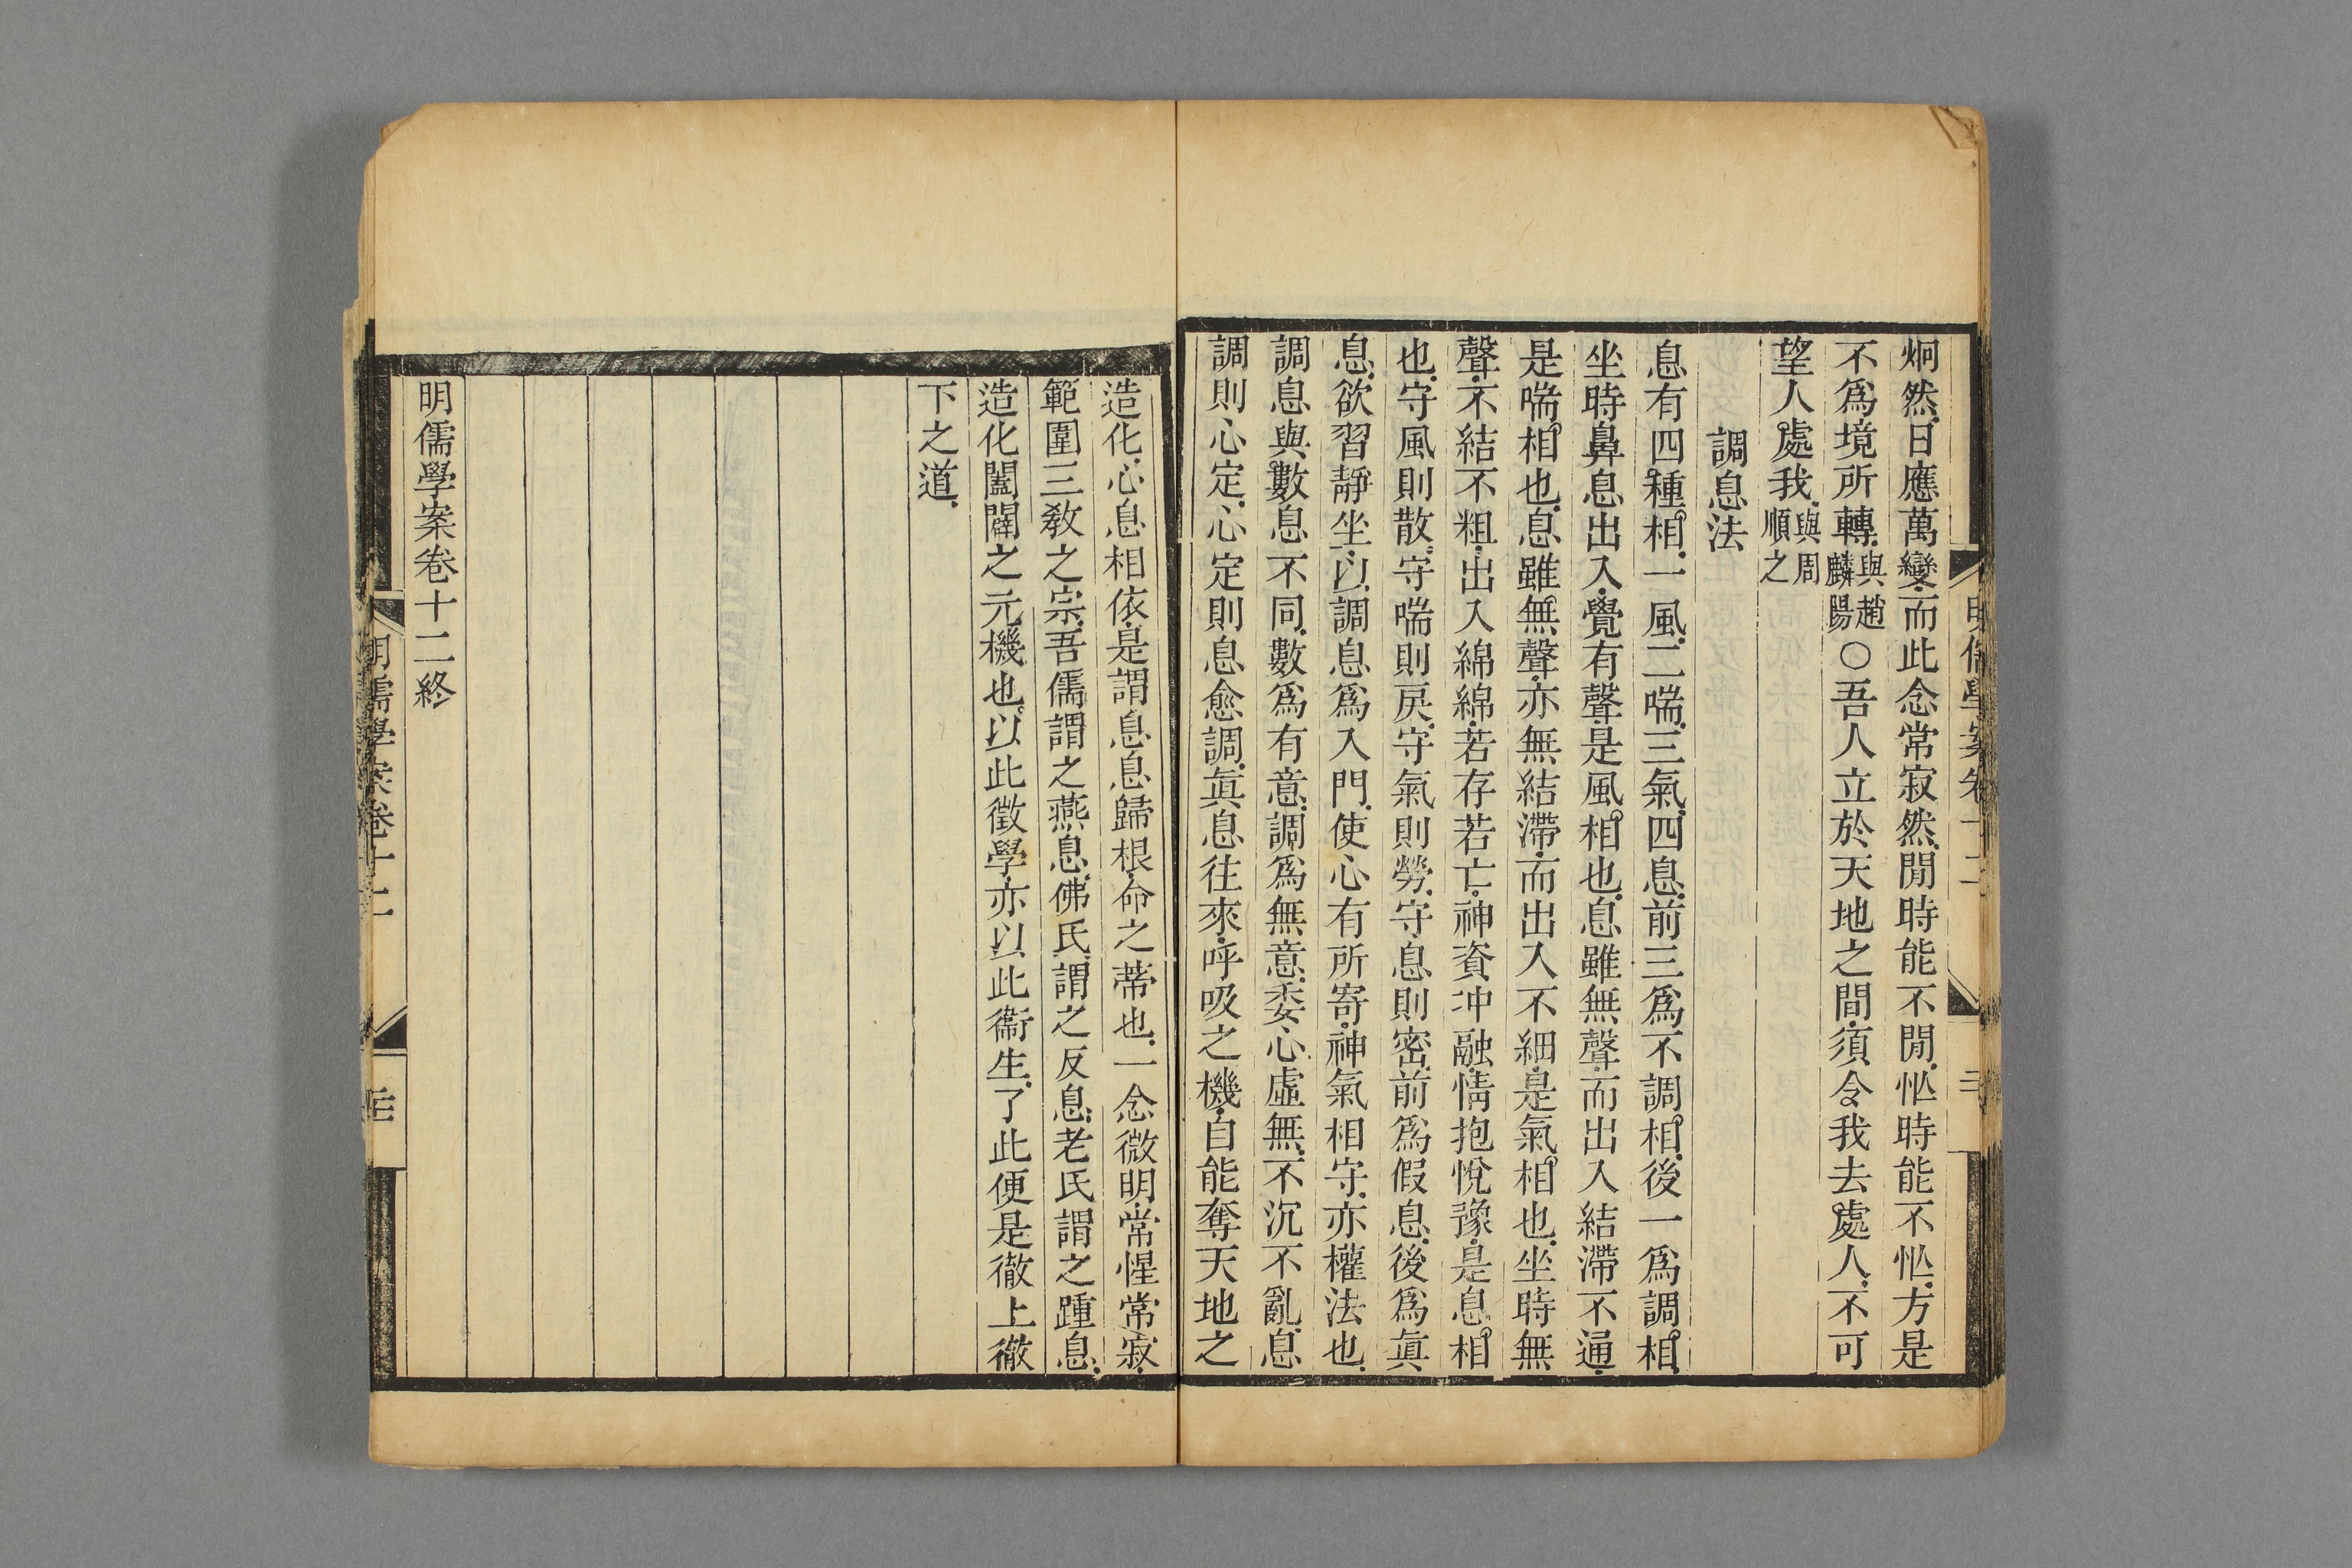 炯然日應萬變而此念常寂然閒時能不閒忙時能不忙方是
不爲境所轉與趙麟陽○吾人立於天地之間須令我去處人不可
望人處我與周順之
調息法
息有四種相一風二喘三氣四息前三爲不調相後一爲調相
坐時鼻息出入覺有聲是風相也息雖無聲而出入結滯不通
是喘相也息雖無聲亦無結滯而出入不細是氣相也坐時無
聲不結不粗出入綿綿若存若亡神資冲融情抱悅豫是息相
也守風則散守喘則戾守氣則勞守息則密前爲假息後爲眞
息欲習靜坐以調息爲入門使心有所寄神氣相守亦權法也
調息與數息不同數爲有意調爲無意委心虛無不沉不亂息
調則心定心定則息愈調眞息往來呼吸之機自能奪天地之
造化心息相依是謂息息歸根命之蒂也一念微明常惺常寂
範圍三教之宗吾儒謂之燕息佛氏謂之反息老氏謂之踵息
造化闔闢之元機也以此徵學亦以此衞生了此便是徹上徹
下之道
明儒學案卷十二終
明儒學案卷十二